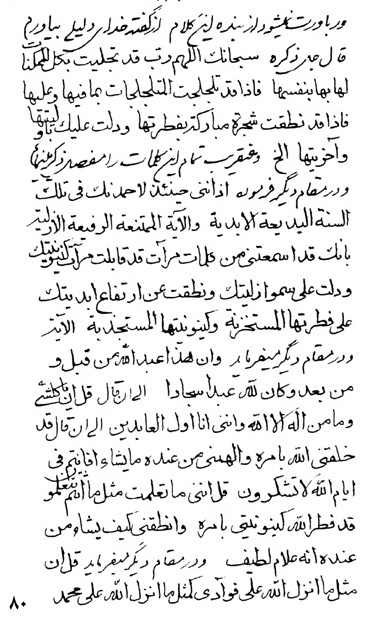 ور باورت نمیشود از بنده این کلام از گفته خدای دلیلی بیاورم
قال جل ذکره سبحانك اللهم رب قد تجلیت بکل الممکنات
لها بها بنفسها فاذا قد تلجلجت المتلجلجات بما فیها وعلیها
فاذا قد نطقت شجرة مبارکة بفطرتها ودلت علیك باولیتها
وآخریتها الخ وعنقریب تمام این کلمات را مفصل ذکر
ودر مقام دیگر فرموده اذاننی حینئذ لاحمدنك فی تلك
السنة البدیعة الابدیة والآیة الممتنعة الرفیعة الازلیة
بانك قد اسمعتنی من کلمات مرآت قد قابلت مرآت کینونیتك
ودلت علی سمو ازلیتك ونطقت عن ارتفاع ابدیتك
علی فطرتها وکینونتها المستجذبة الآیة
ودر مقام دیگر میفرماید وان هذا عبد الله من قبل و
من بعد وکان لله عبدا سجادا الی ان قال قل ان
وما من اله الا الله واننی انا اول العابدین الی ان قال قد
خلقنی الله بامره والهمنی من عنده ما یشاء افانتم فی
ایام الله لا تشکرون قل اننی ما تعلمت مثل ما انتم
قد فطر الله کینونیتی بامره وانطقنی کیف یشاء من
عنده انه علام لطیف ودر مقام دیگر میفرماید قل ان
مثل ما انزل الله علی فوآدی کمثل ما انزل الله علی محمد
۸۰